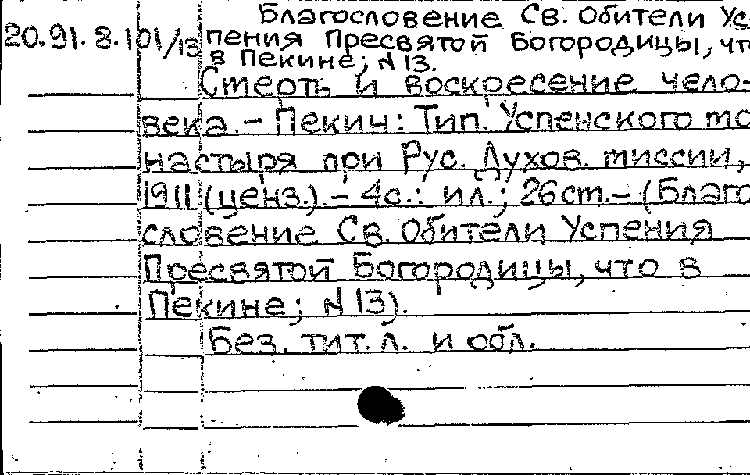 Благословение Св. Обители Ус
20.91.8.101/13 пения Пресвятой Богородицы, чт
в Пекине; N 13.
Смерть и воскресение чело-
века. – Пекин: Тип. Успенского мо
настыря при Рус. Духов. миссии,
1911 (ценз.). – 4с.: ил.; 26 см. – (Благо
словение Св. Обители Успения
Пресвятой Богородицы, что в
Пекине; N 13).
Без. тит. л. и обл.